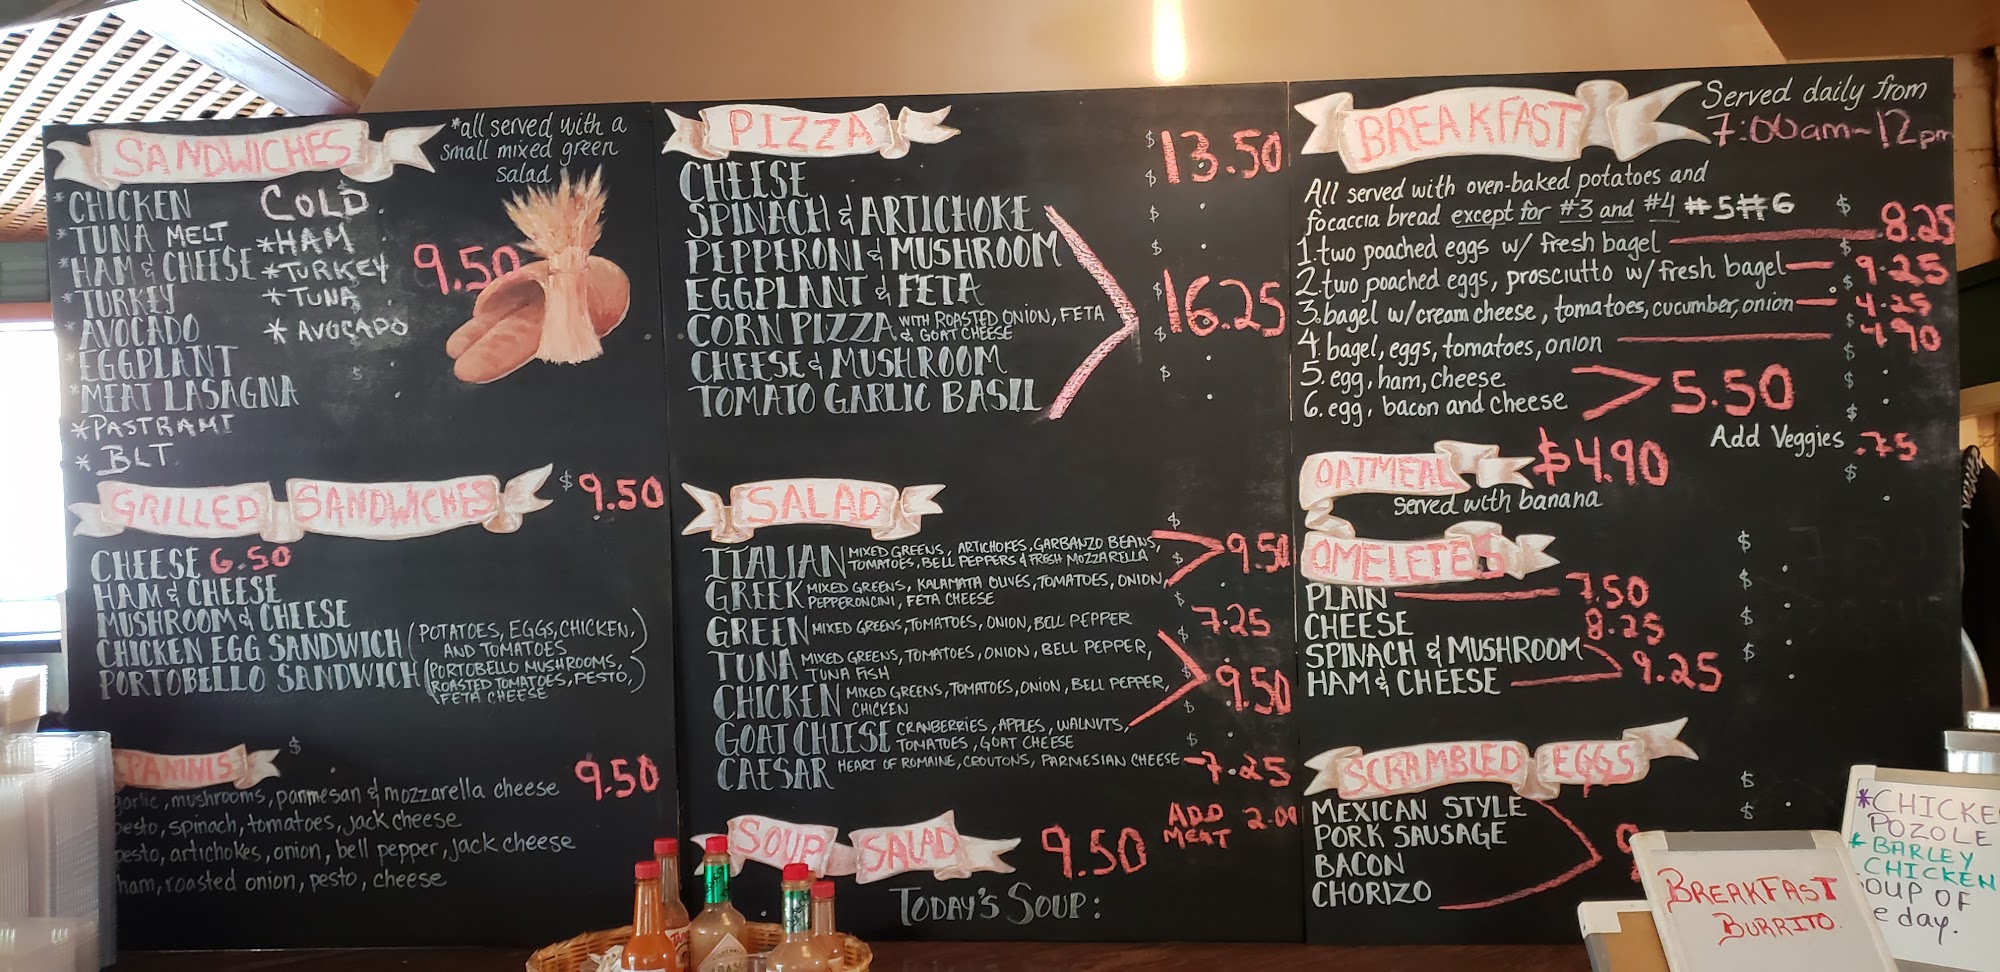 SANDWICHES
*all served with a
small mixed green
salad
*CHICKEN
*TUNA MELT
*HAM & CHEESE
*TURKEY
*AVOCADO
*EGGPLANT
*MEAT LASAGNA
*PASTRAMI
*BLT
COLD
*HAM
*TURKEY
*TUNA
*AVOCADO
9.50
GRILLED SANDWICHES $9.50
CHEESE 6.50
HAM & CHEESE
MUSHROOM & CHEESE
CHICKEN EGG SANDWICH (POTATOES, EGGS, CHICKEN,
AND TOMATOES)
PORTOBELLO SANDWICH (PORTOBELLO MUSHROOMS,
ROASTED TOMATOES, PESTO,
FETA CHEESE)
PANINIS $
9.50
garlic, mushrooms, parmesan & mozzarella cheese
pesto, spinach, tomatoes, jack cheese
pesto, artichokes, onion, bell pepper, jack cheese
ham, roasted onion, pesto, cheese
PIZZA
CHEESE $13.50
SPINACH & ARTICHOKE
PEPPERONI & MUSHROOM
EGGPLANT & FETA
CORN PIZZA WITH ROASTED ONION, FETA
& GOAT CHEESE
CHEESE & MUSHROOM
TOMATO GARLIC BASIL
$16.25
SALAD
ITALIAN MIXED GREENS, ARTICHOKES, GARBANZO BEANS,
TOMATOES, BELL PEPPERS & FRESH MOZZARELLA
GREEK MIXED GREENS, KALAMATA OLIVES, TOMATOES, ONION,
PEPPERONCINI, FETA CHEESE
9.50
GREEN MIXED GREENS, TOMATOES, ONION, BELL PEPPER 7.25
TUNA MIXED GREENS, TOMATOES, ONION, BELL PEPPER,
TUNA FISH
CHICKEN MIXED GREENS, TOMATOES, ONION, BELL PEPPER,
CHICKEN
GOAT CHEESE CRANBERRIES, APPLES, WALNUTS,
TOMATOES, GOAT CHEESE
9.50
CAESAR HEART OF ROMAINE, CROUTONS, PARMESIAN CHEESE 7.25
ADD
MEAT 2.00
SOUP SALAD 9.50
TODAY'S SOUP:
BREAKFAST
Served daily from
7:00am-12pm
All served with oven-baked potatoes and
focaccia bread except for #3 and #4 #5 #6
1. two poached eggs w/ fresh bagel 8.25
2. two poached eggs, prosciutto w/ fresh bagel 9.25
3. bagel w/cream cheese, tomatoes, cucumber, onion 4.25
4. bagel, eggs, tomatoes, onion 4.90
5. egg, ham, cheese
6. egg, bacon and cheese
5.50
Add Veggies .75
OATMEAL $4.90
Served with banana
OMELETES
PLAIN 7.50
CHEESE 8.25
SPINACH & MUSHROOM
HAM & CHEESE
9.25
SCRAMBLED EGGS
MEXICAN STYLE
PORK SAUSAGE
BACON
CHORIZO
BREAKFAST
BURRITO
*CHICKE
POZOLE
*BARLEY
CHICKEN
OUP OF
e day.